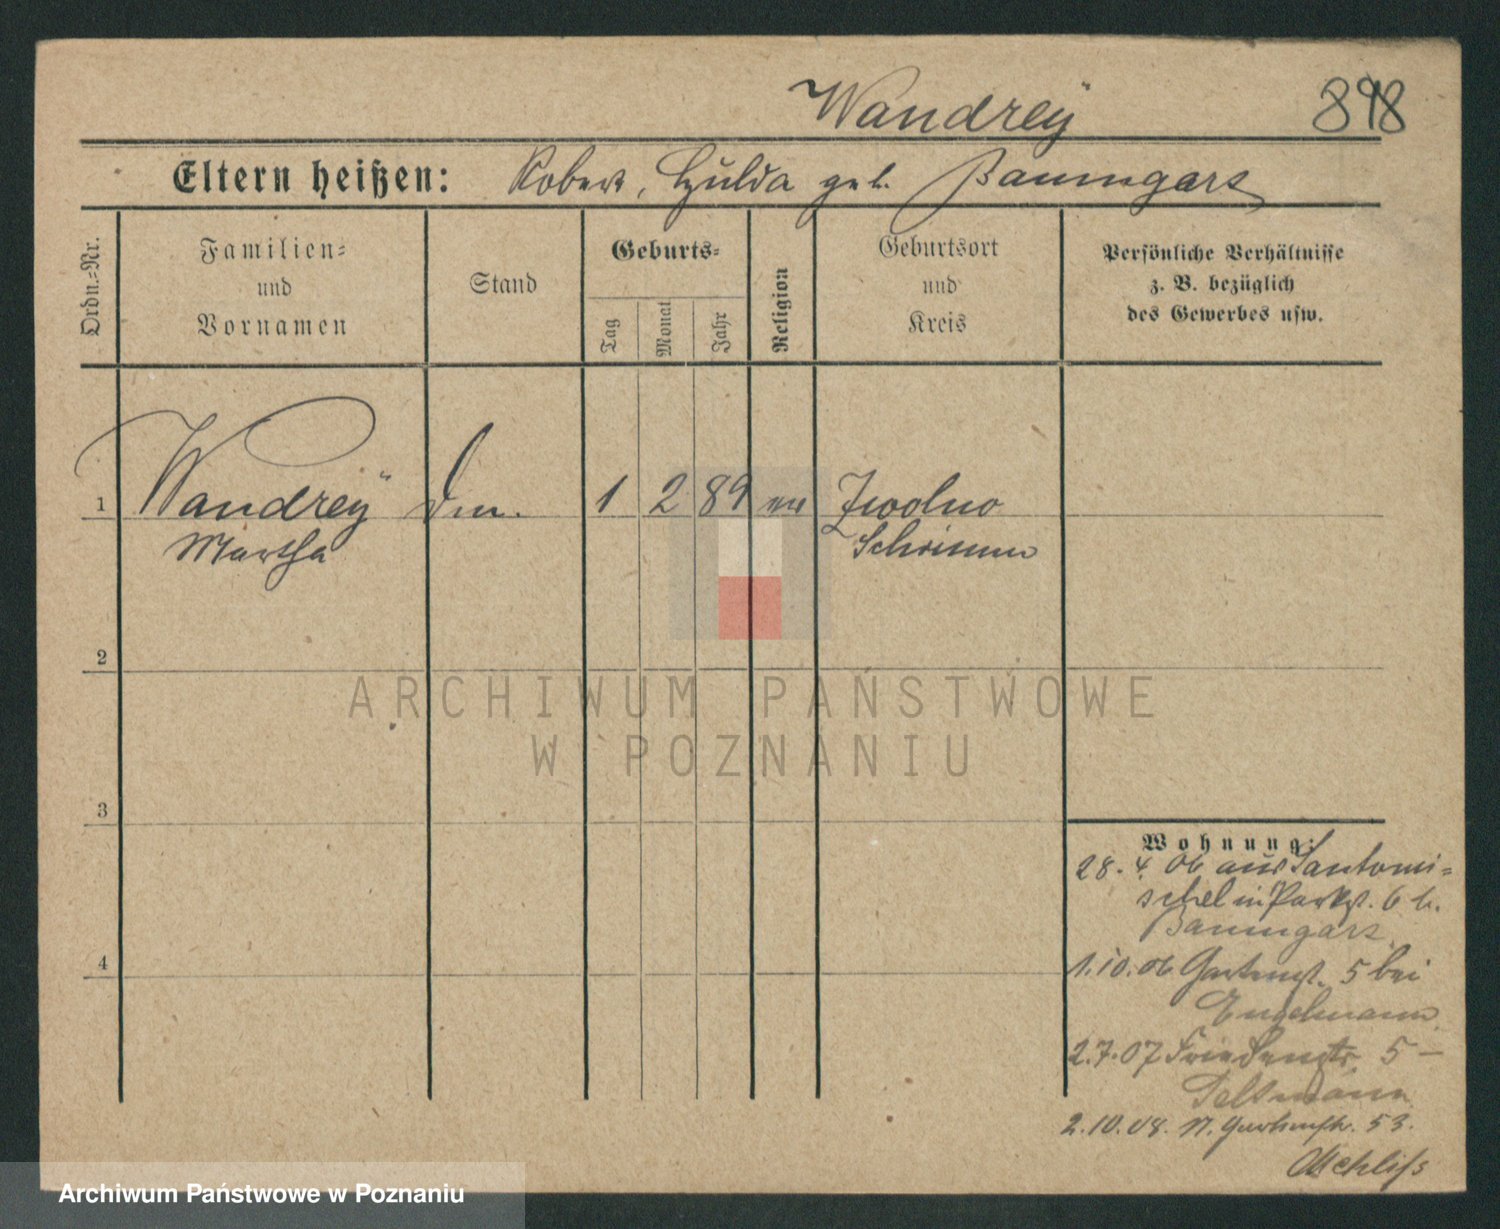 Wandrey 898
Eltern heißen: Robert, Hulda geb. Baumgart
Ordn.=Nr.
Familien= und Vornamen
Stand
Geburts=
Tag
Monat
Jahr
Religion
Geburtsort und Kreis
Persönliche Verhältnisse
z. B. bezüglich
des Gewerbes usw.
1 Wandrey Dm. 1 2 89 ev Zwolno
Martha Schrimm
2
3
4
Wohnung:
28. 4. 06 aus Santomi=
schel in Parkst. 6 b.
Baumgart
1.10.06 Gartenst. 5 bei
Engelmann
2.7.07 Friedenstr 5 –
Seltmann
2.10.08. N. Gartenstr. 53.
ARCHIWUM PAŃSTWOWE
W POZNANIU
Archiwum Państwowe w Poznaniu